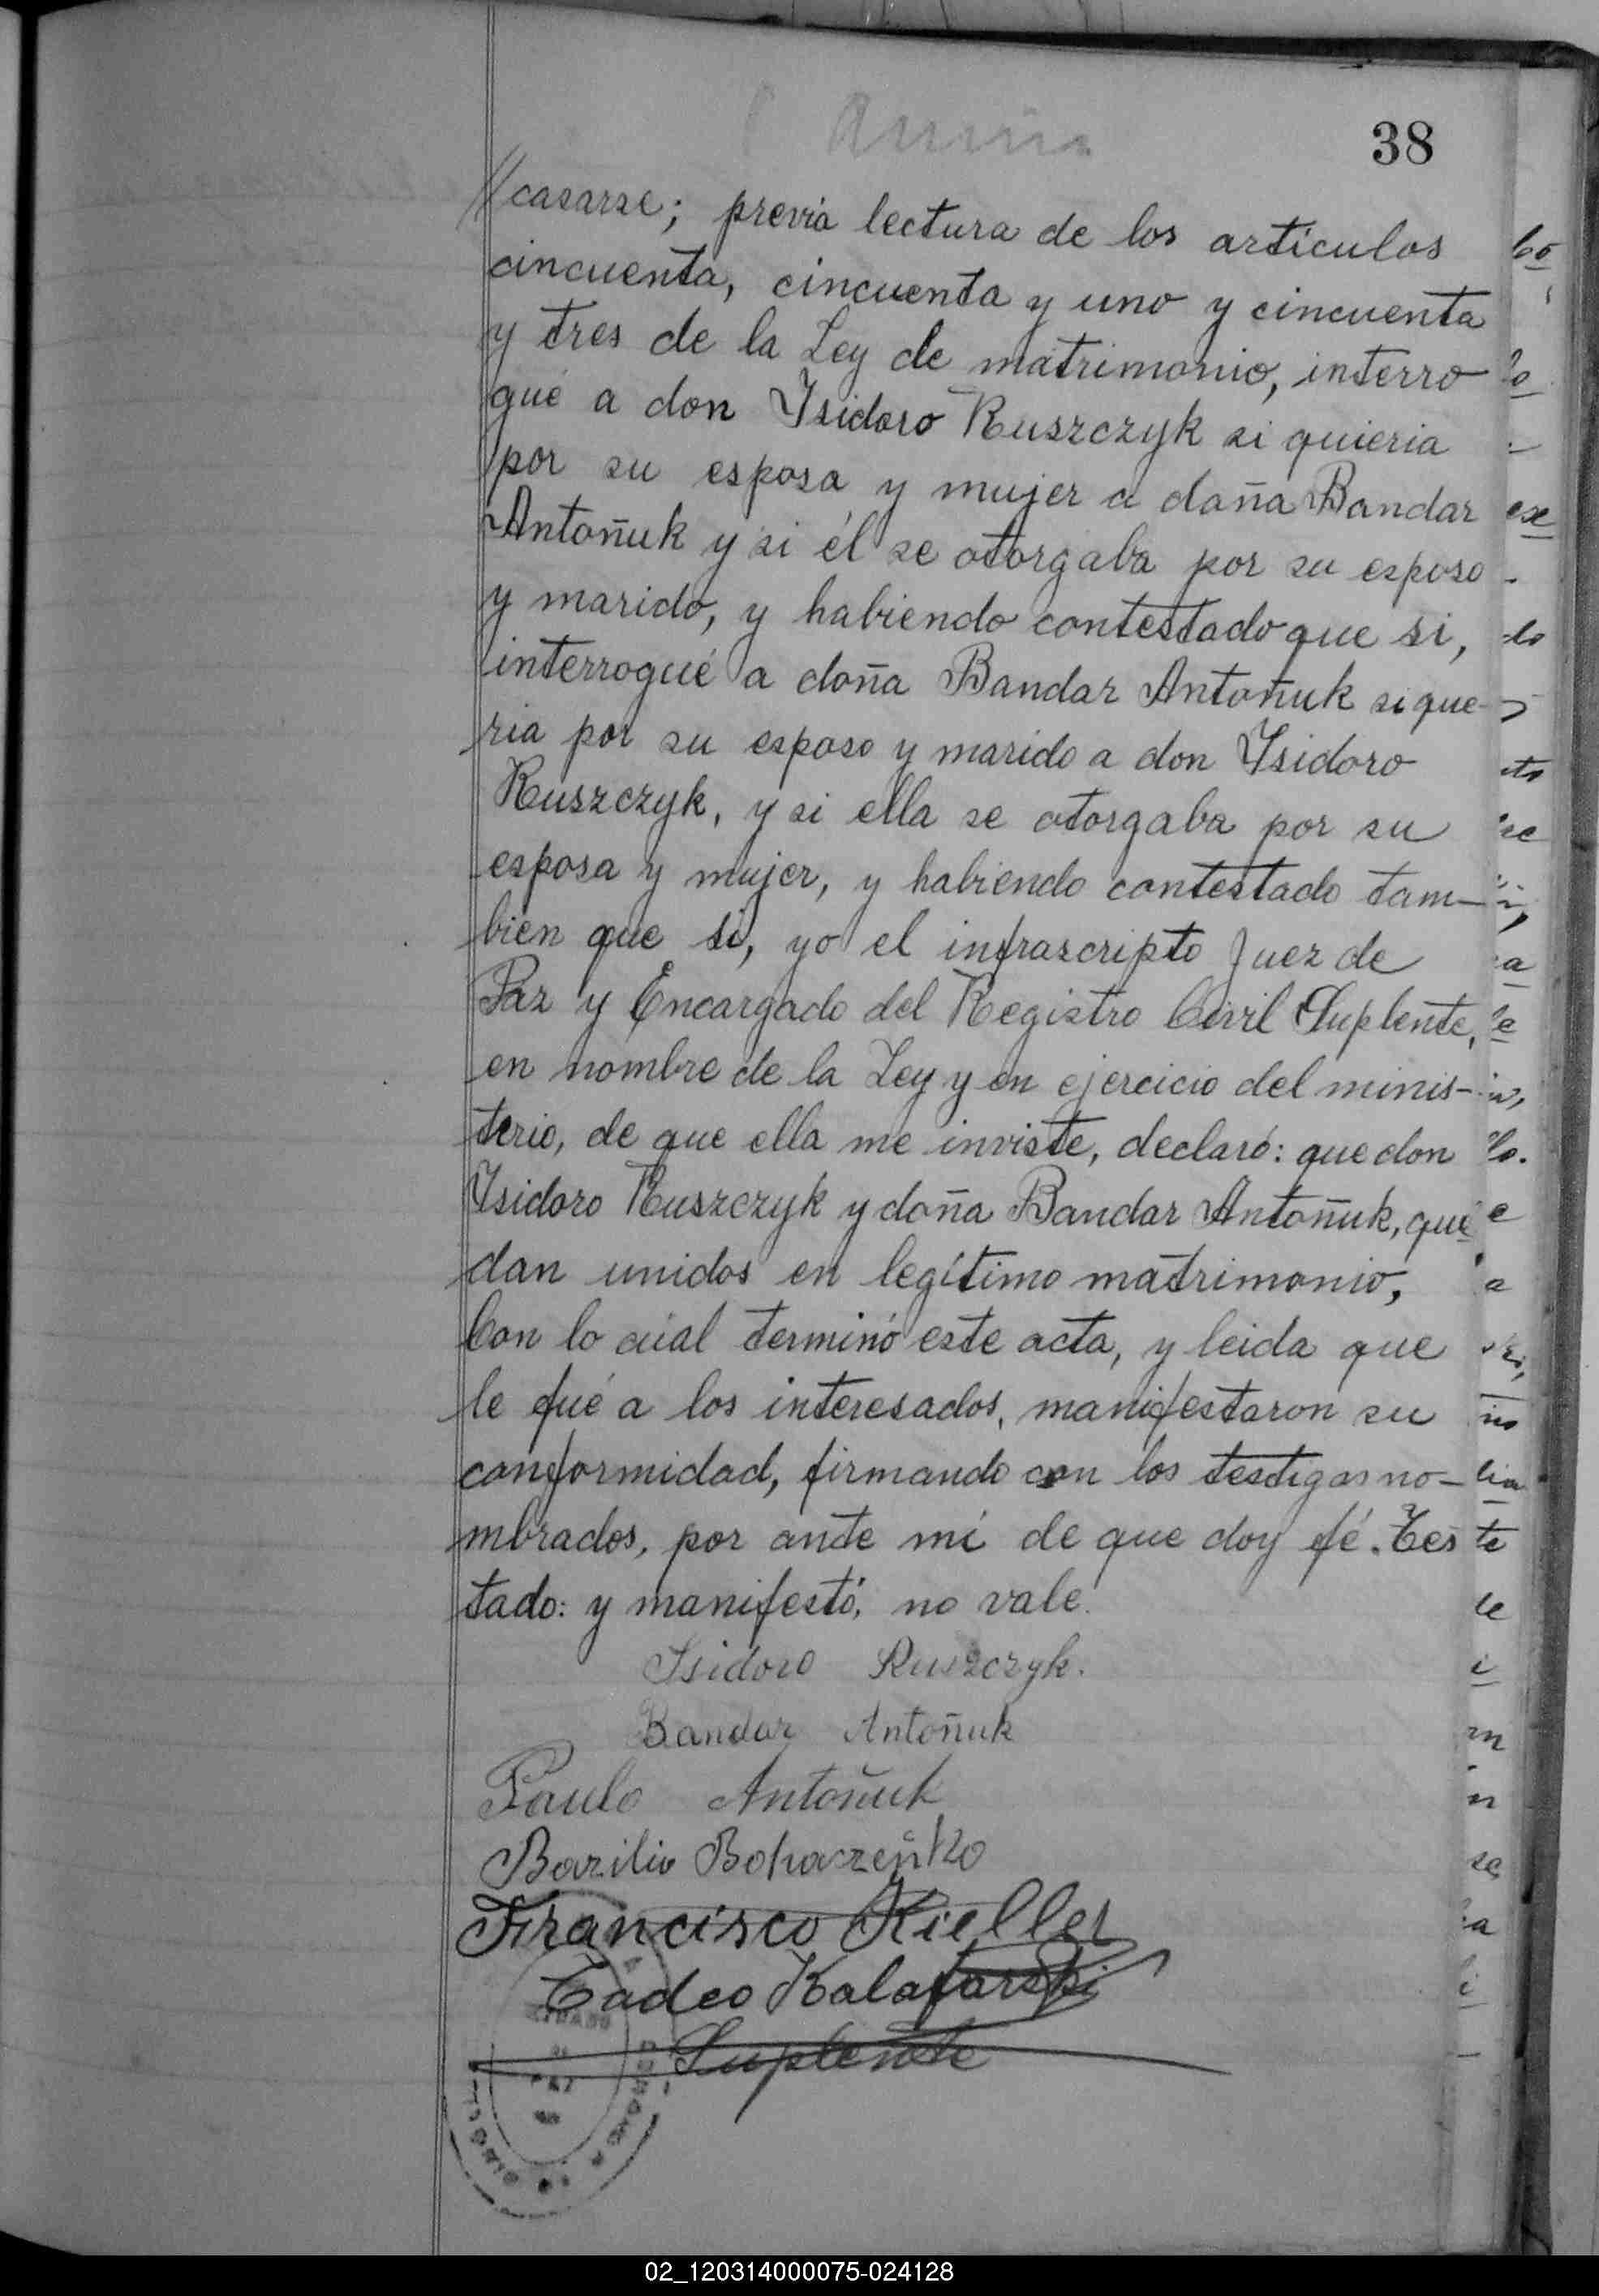 38
//casarse; previa lectura de los artículos
cincuenta, cincuenta y uno y cincuenta
y tres de la Ley de matrimonio, interro
gué a don Isidoro Ruszczyk si quieria
por su esposa y mujer a doña Bandar
Antoñuk y si él se otorgaba por su esposo
y marido, y habiendo contestado que si,
interrogué a doña Bandar Antoñuk si que-
ria por su esposo y marido a don Isidoro
Ruszczyk, y si ella se otorgaba por su
esposa y mujer, y habiendo contestado tam-
bien que si, yo el infrascripto Juez de
Paz y Encargado del Registro Civil Suplente,
en nombre de la Ley y en ejercicio del minis-
terio, de que ella me inviste, declaró: que don
Isidoro Ruszczyk y doña Bandar Antoñuk, que
dan unidos en legítimo matrimonio,
Con lo cúal terminó este acta, y leida que
le fué a los interesados, manifestaron su
conformidad, firmando con los testigos no-
mbrados, por ante mí de que doy fé. Tes
tado: y manifestó, no vale.
Isidoro Ruszczyk.
Bandar Antoñuk
Paulo Antoñuk
Bazilio Bohaczeńko
Francisco Kieller
Tadeo Kalafarski
Suplente
02_120314000075-024128